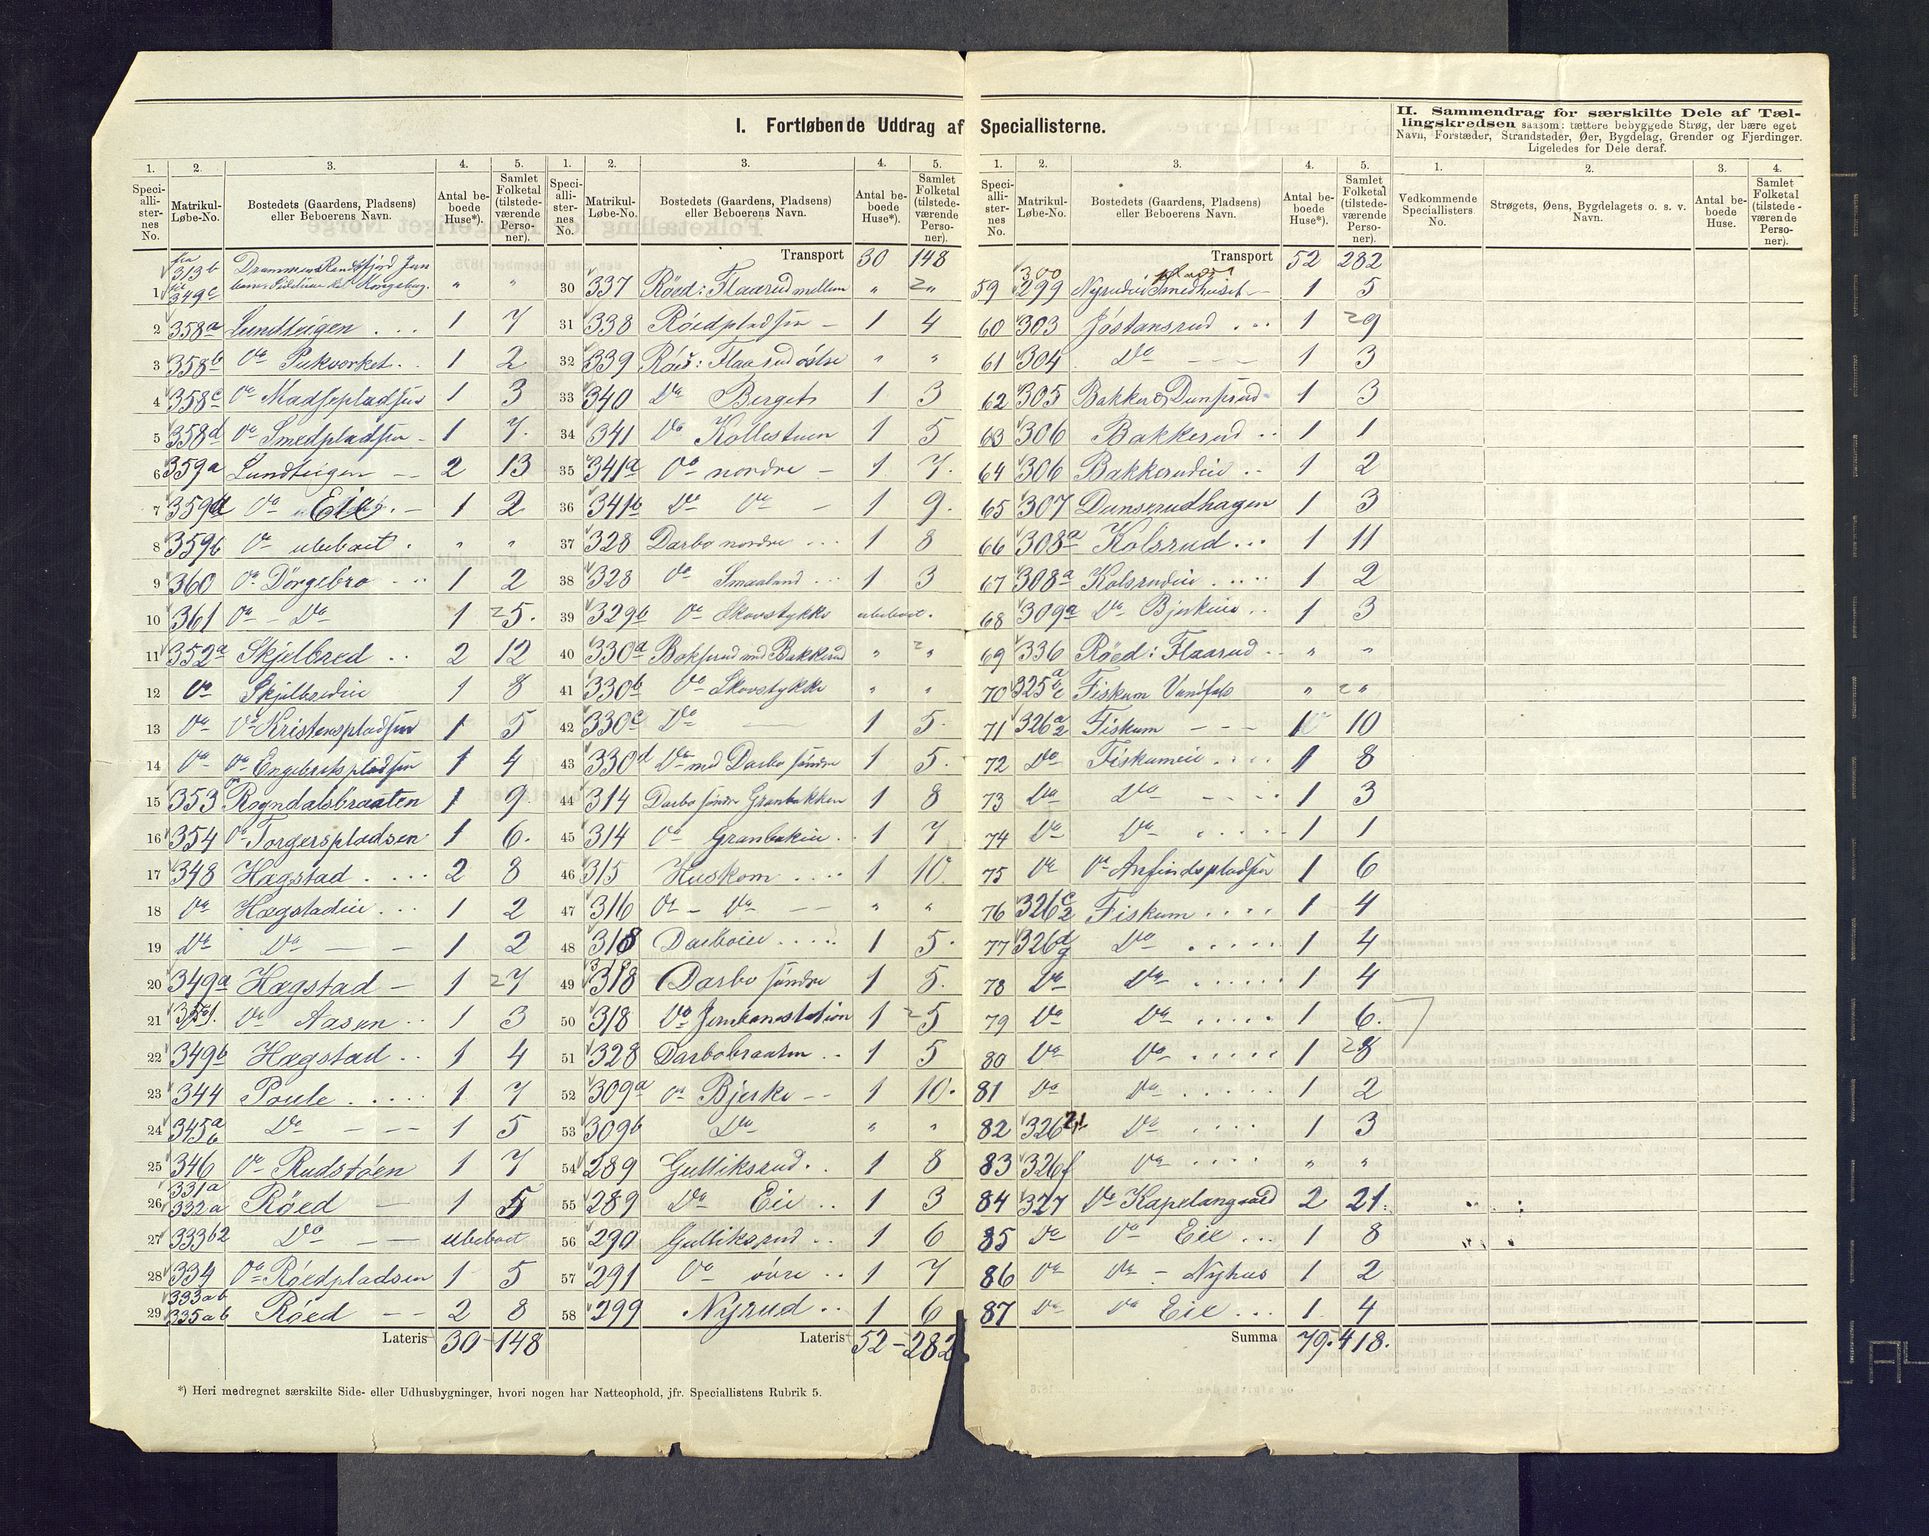 I. Fortløbende Uddrag af Speciallisterne.
II. Sammendrag for særskilte Dele af Tæl-
lingskredsen saasom: tættere bebyggede Strøg, der bære eget
Navn, Forstæder, Strandsteder, Øer, Bygdelag, Grender og Fjerdinger.
Ligeledes for Dele deraf.
1. 2. 3. 4. 5.
Speci-alli-ster-nes No. Matrikul-Løbe-No. Bostedets (Gaardens, Pladsens) eller Beboerens Navn. Antal be-boede Huse*). Samlet Folketal (tilstede-værende Perso-ner).
313b
1 349c " "
2 358a Lundteigen 1 7
3 358b Do Pukverket 1 2
4 358c Do Madsepladsen 1 3
5 358d Do Smedpladsen 1 7.
6 359a Lundteigen 2 13
7 359a Do Eie 1 2
8 359b Do ubeboet " "
9 360 Do Dørgebro 1 2
10 361 Do Do 1 5.
11 352a Skjelbred 2 12
12 Do Skjelbredeie 1 8
13 Do Do Kristenspladsen 1 5
14 Do Do Engebretspladsen 1 4
15 353 Rogndalsbraaten 1 9.
16 354 Do Torgerspladsen 1 6.
17 348 Hægstad 2 8
18 Do Hægstadeie 1 2
19 Do Do 1 2
20 349a Hægstad 1 7
21 Do Aasen 1 3
22 349b Hægstad 1 4
23 344 Poule 1 7
24 345a b Do 1 5
25 346 Do Rudstøen 1 7
26 331a 332a Røed 1 5
27 333b2 Do ubeboet
28 334 Do Røedpladsen 1 5
29 333ab 335ab Røed 2 8
Lateris 30 148
1. 2. 3. 4. 5.
Speci-alli-ster-nes No. Matrikul-Løbe-No. Bostedets (Gaardens, Pladsens) eller Beboerens Navn. Antal be-boede Huse*). Samlet Folketal (tilstede-værende Perso-ner).
Transport 30 148
30 337 Røed: Flaarud mellem " "
31 338 Røedpladsen 1 4
32 339 Røed: Flaarud østre " "
33 340 Do Berget 1 3
34 341 Do Kollestuen 1 5
35 341a Do nordre 1 7.
36 341b Do Do 1 9.
37 328 Darbo nordre 1 8
38 328 Do Smaaland 1 3
39 329b Do Skovstykke ubeboet.
40 330a Bokserud med Bakkerud " "
41 330b Do Skovstykke " "
42 330c Do 1 5.
43 330d Do med Darbo søndre 1 5.
44 314 Darbo søndre Granbakken 1 8
45 314 Do Granbakeie 1 7
46 315 Huskom 1 10
47 316 Do Do " "
48 318 Darboeie 1 5.
49 318 Darbo søndre 1 5.
50 318 Do Jernbanestation 1 5
51 328 Darbobraaten 1 5
52 309a Do Bjerke 1 10.
53 309b Do " "
54 289 Gulliksrud 1 8
55 289 Do Eie 1 3
56 290 Gulliksrud 1 6
57 291 Do øvre 1 7
58 299 Nyrud 1 6
Lateris 52 282
1. 2. 3. 4. 5.
Speci-alli-ster-nes No. Matrikul-Løbe-No. Bostedets (Gaardens, Pladsens) eller Beboerens Navn. Antal be-boede Huse*). Samlet Folketal (tilstede-værende Perso-ner).
Transport 52 282
300
59 299 Nyrudeie Smedhuset 1 5
60 303 Jøstansrud 1 9
61 304 Do 1 3
62 305 Bakke & Dunserud 1 3
63 306 Bakkerud 1 1
64 306 Bakkerudeie 1 2
65 307 Dunserudhagen 1 3
66 308a Kolsrud 1 11
67 308a Kolsrudeie 1 2
68 309a Do Bjerkeie 1 3
69 336 Røed: Flaarud " "
70 325 Fiskum Vandfald " "
71 326a2 Fiskum 1 10
72 Do Fiskumeie 1 8
73 Do Do 1 3
74 Do Do 1 1
75 Do Do Arfindspladsen 1 6
76 326c2 Fiskum 1 4
77 326d Do 1 4
78 Do Do 1 4
79 Do Do 1 6.
80 Do Do 1 8
81 Do Do 1 2
82 326 Do 1 3
83 326f Do " "
84 327 Do Kapelangaard 2 21.
85 Do Do Eie 1 8
86 Do Do Nyhus 1 2
87 Do Do Eie 1 4
Summa 79. 418.
1. 2. 3. 4.
Vedkommende Speciallisters No. Strøgets, Øens, Bygdelagets o. s. v. Navn. Antal be-boede Huse. Samlet Folketal (tilstede-værende Perso-ner).
*) Heri medregnet særskilte Side- eller Udhusbygninger, hvori nogen har Natteophold, jfr. Speciallistens Rubrik 5.